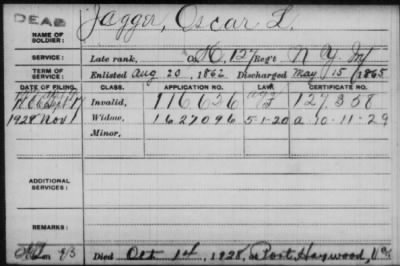 DEAD
NAME OF SOLDIER: Jagger, Oscar L.
SERVICE: Late rank, Co. K, 127 Reg't N Y Inf
TERM OF SERVICE: Enlisted Aug 20, 1862 Discharged May 15, 1865
DATE OF FILING. CLASS. APPLICATION NO. LAW. CERTIFICATE NO.
Invalid, 116,626 127,358
1928 Nov 1 Widow, 1627096 5-1-20 a. 10-11-29
Minor,
ADDITIONAL SERVICES:
REMARKS:
Died Oct 14, 1928, at Port Haywood, Va